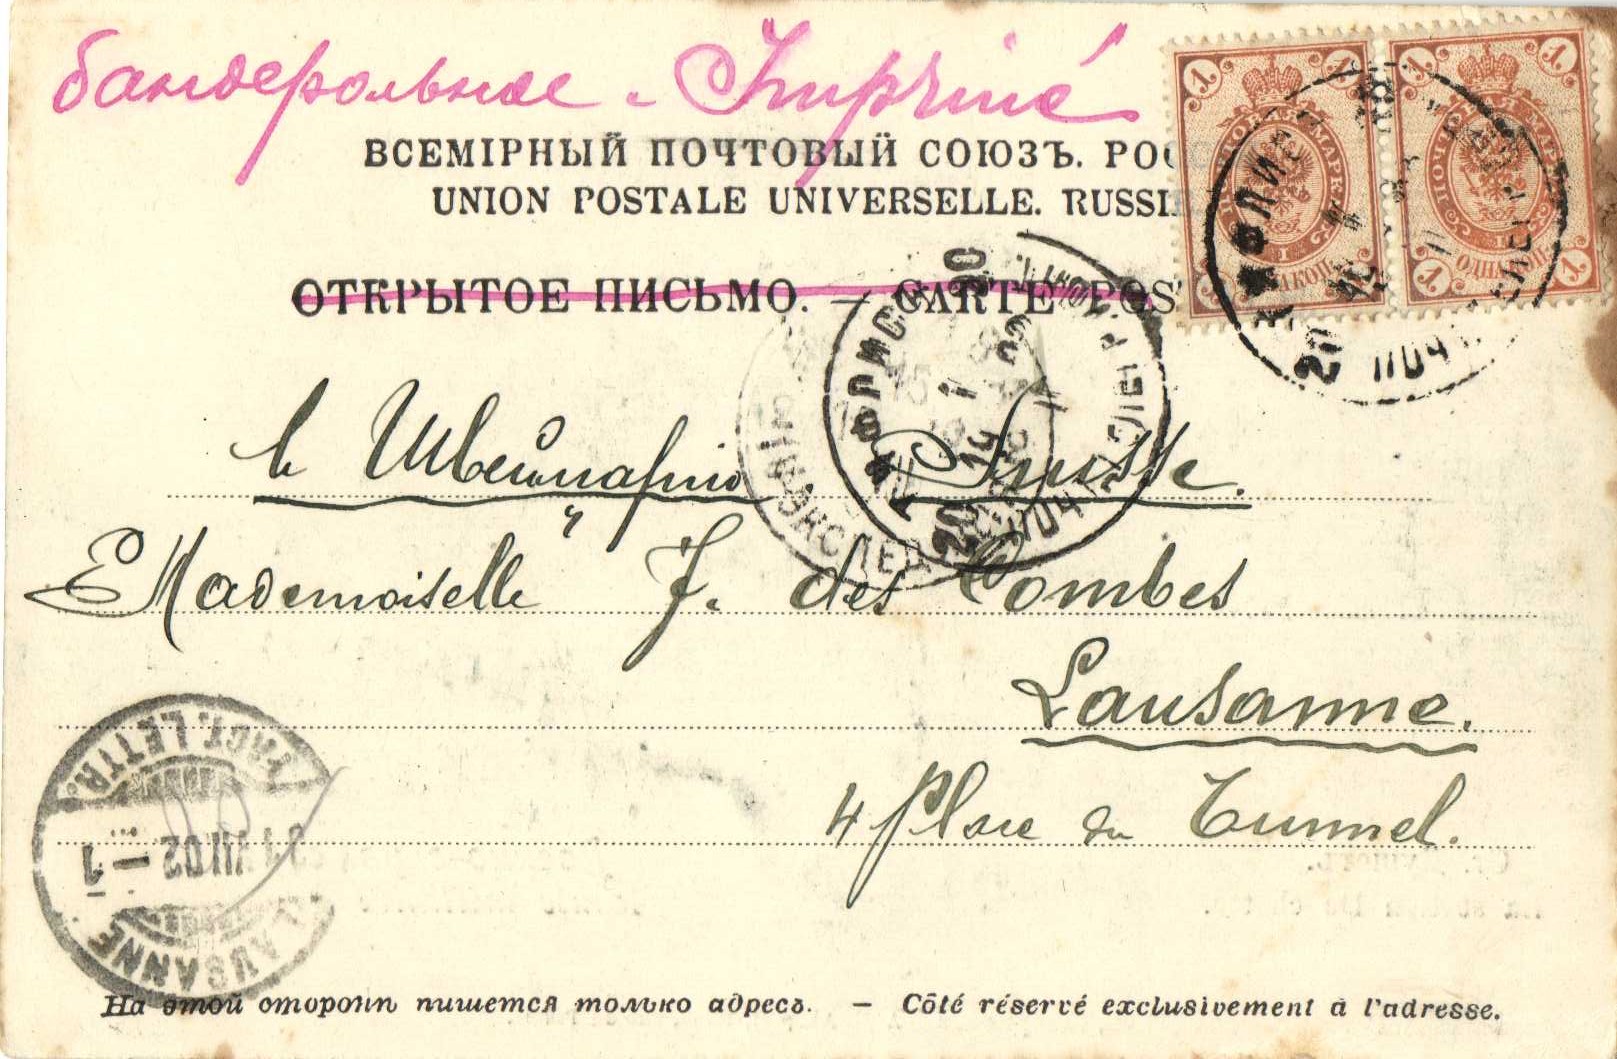 бандерольное - Imprimé
ВСЕМІРНЫЙ ПОЧТОВЫЙ СОЮЗЪ.
UNION POSTALE UNIVERSELLE. RUSSIE
ОТКРЫТОЕ ПИСЬМО. — CARTE POS
1 1 1 1
въ Швейцарію Suisse.
Mademoiselle J. des Combes
Lausanne.
4 Place du Tunnel.
LAUSANNE
VIII 02 – 1
LETTR.
На этой сторонѣ пишется только адресъ. — Côté réservé exclusivement à l'adresse.